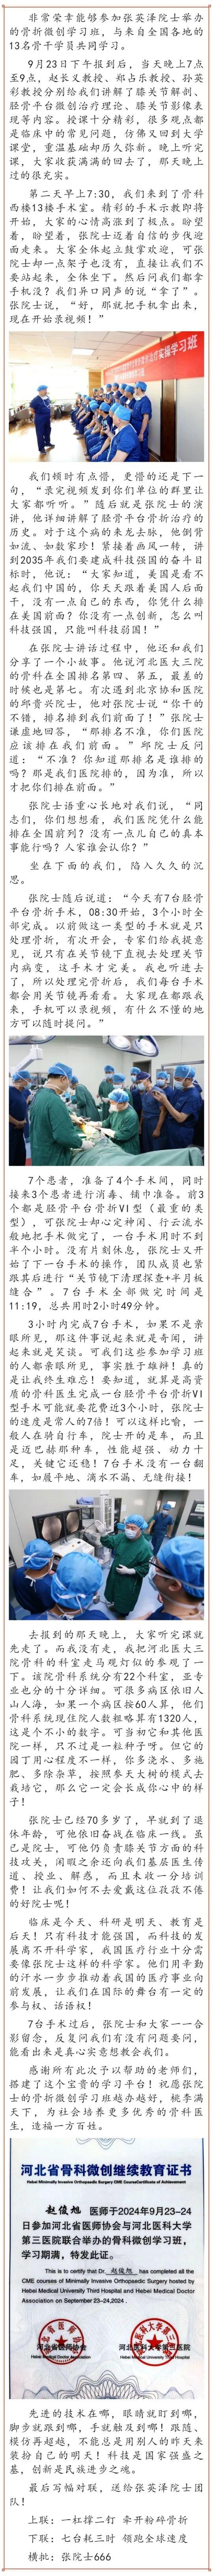 非常荣幸能够参加张英泽院士举办
的骨折微创学习班，与来自全国各地的
13名骨干学员共同学习。
9月23日下午报到后，当天晚上7点
至9点，赵长义教授、郑占乐教授、孙英
彩教授分别给我们讲解了膝关节解剖、
胫骨平台微创治疗理论、膝关节影像表
现等内容。授课十分精彩，很多观点都
是临床中的常见问题，仿佛又回到大学
课堂，重温基础却历久弥新。晚上听完
课，大家收获满满的回去了，那天晚上
过的很充实。
第二天早上7:30，我们来到了骨科
西楼13楼手术室。精彩的手术示教即将
开始，大家的心情高涨到了极点。盼望
着，盼望着，张院士迈着自信的步伐迎
面走来。大家全体起立鼓掌欢迎，可张
院士却一点架子也没有，直接让我们不
要站起来，全体坐下。然后问我们都拿
手机没？我们异口同声的说“拿了”。
张院士说，“好，那就把手机拿出来，
现在开始录视频！”
治疗实操学习班
我们顿时有点懵，更懵的还是下一
句，“录完视频发到你们单位的群里让
大家都听听。”随后就是张院士的演
讲，他详细讲解了胫骨平台骨折治疗的
历史。对于这个病的来龙去脉，他倒背
如流、如数家珍！紧接着画风一转，讲
到2035年我们要建成科技强国的奋斗目
标时，他说：“大家知道，美国是看不
起我们中国的，你天天跟着美国人后面
干，没有一点自己的东西，你凭什么排
在美国前面？你没有一点创新，怎么叫
科技强国，只能叫科技弱国！”
在张院士讲话过程中，他还和我们
分享了一个小故事。他说河北医大三院
的骨科在全国排名第四、第五，最差的
时候也是第七。有次遇到北京协和医院
的邱贵兴院士，他对张院士说“你干的
不错，排名排到我们前面了！”张院士
谦虚地回答，“那排名不准，你们医院
应该排在我们前面。”邱院士反问
道：“不准？你知道那排名是谁排的
吗？那是我们医院排的，因为准，所以
才把你们排在前面。”
张院士语重心长地对我们说，“同
志们，你们想想看，我们医院凭什么能
排在全国前列？没有一点儿自己的真本
事能行吗？人家谁会认你？”
坐在下面的我们，陷入久久的沉
思。
张院士随后说道：“今天有7台胫骨
平台骨折手术，08:30开始，3个小时全
部完成。以前做这一类型的手术就是只
处理骨折，有次开会，专家们给我提意
见，说只有在关节镜下直视去处理关节
内病变，这手术才完美。我也听进去
了，所以处理完骨折后，我们每台手术
都会用关节镜再看看。大家现在都跟我
来，手机可以录视频，有什么不懂的地
方可以随时提问。”
7个患者，准备了4个手术间，同时
接来3个患者进行消毒、铺巾准备。前3
个都是胫骨平台骨折VI型（最重的类
型），可张院士却心定神闲、行云流水
般地把手术做完了，一台手术用时不到
半个小时。没有片刻休息，张院士又开
始了下一台手术的操作，团队成员也紧
跟其后进行“关节镜下清理探查+半月板
缝合”。7台手术全部做完时间是
11:19，总共用时2小时49分钟。
3小时内完成7台手术，如果不是亲
眼所见，那这件事说起来就是奇闻，讲
起来就是笑谈。可我们这些参加学习班
的人都亲眼所见，事实胜于雄辩！真的
是让我终生难忘！要知道，就算是高资
质的骨科医生完成一台胫骨平台骨折VI
型手术可能就要花费近3个小时，张院士
的速度是常人的7倍！可以这样比喻，一
般人在骑自行车，院士开的是车，而且
是迈巴赫那种车，性能超强、动力十
足，关键它还稳！7台手术没有一台翻
车，如履平地、滴水不漏、无缝衔接！
去报到的那天晚上，大家听完课就
先走了。而我没有走，我把河北医大三
院骨科的科室走马观灯似的参观了一
下。该院骨科系统分有22个科室，亚专
业也分的十分详细。可很多病区依旧人
山人海，如果一个病区按60人算，他们
骨科系统现住院人数粗略算有1320人，
这是个不小的数字。可当初它和其他医
院一样，只不过是一粒种子呀。但它的
园丁用心程度不一样，你多浇水、多施
肥、多除杂草，按照参天大树的模式去
栽培它，那么它一定会长成你心中的样
子！
张院士已经70多岁了，早就到了退
休年龄，可他依旧奋战在临床一线。虽
已是院士，可他仍负责膝关节方面的科
技攻关，闲暇之余还向我们基层医生传
道、授业、解惑，而且未收一分培训
费！让我们如何不去爱戴这位孜孜不倦
的好院士呢！
临床是今天、科研是明天、教育是
后天！只有科技才能强国，而科技的发
展离不开科学家，我国医疗行业十分需
要像张院士这样的科学家。他们用辛勤
的汗水一步步推动着我国的医疗事业向
前发展，让我们在国际的舞台有一定的
参与权、话语权！
7台手术过后，张院士和大家一一合
影留念，反复问我们有没有问题要问，
能看出来是真心实意想教会我们。
感谢所有此次予以帮助的老师们，
搭建了这个宝贵的学习平台！祝愿张院
士的骨折微创学习班越办越好，桃李满
天下，为社会培养更多优秀的骨科医
生，造福一方百姓。
河北省骨科微创继续教育证书
Hebei Minimally Invasive Orthopaedic Surgery CME CourseCertificate of Achievement
赵俊旭 医师于2024年9月23-24
日参加河北省医师协会与河北医科大学
第三医院联合举办的骨科微创学习班，
学习期满，特发此证。
This is to certify that Dr. 赵俊旭 has completed all the
CME courses of Minimally Invasive Orthopaedic Surgery hosted by
Hebei Medical University Third Hospital and Hebei Medical Doctor
Association on September 23-24,2024 .
河北省医师协会 河北医科大学第三医院
先进的技术在哪，眼睛就盯到哪，
脚步就跟到哪，手就触及到哪！跟随、
模仿再超越，不能总是用别人的昨天来
装扮自己的明天！科技是国家强盛之
基，创新是民族进步之魂。
最后写幅对联，送给张英泽院士团
队！
上联：一杠撑二钉 牵开粉碎骨折
下联：七台耗三时 领跑全球速度
横批：张院士666